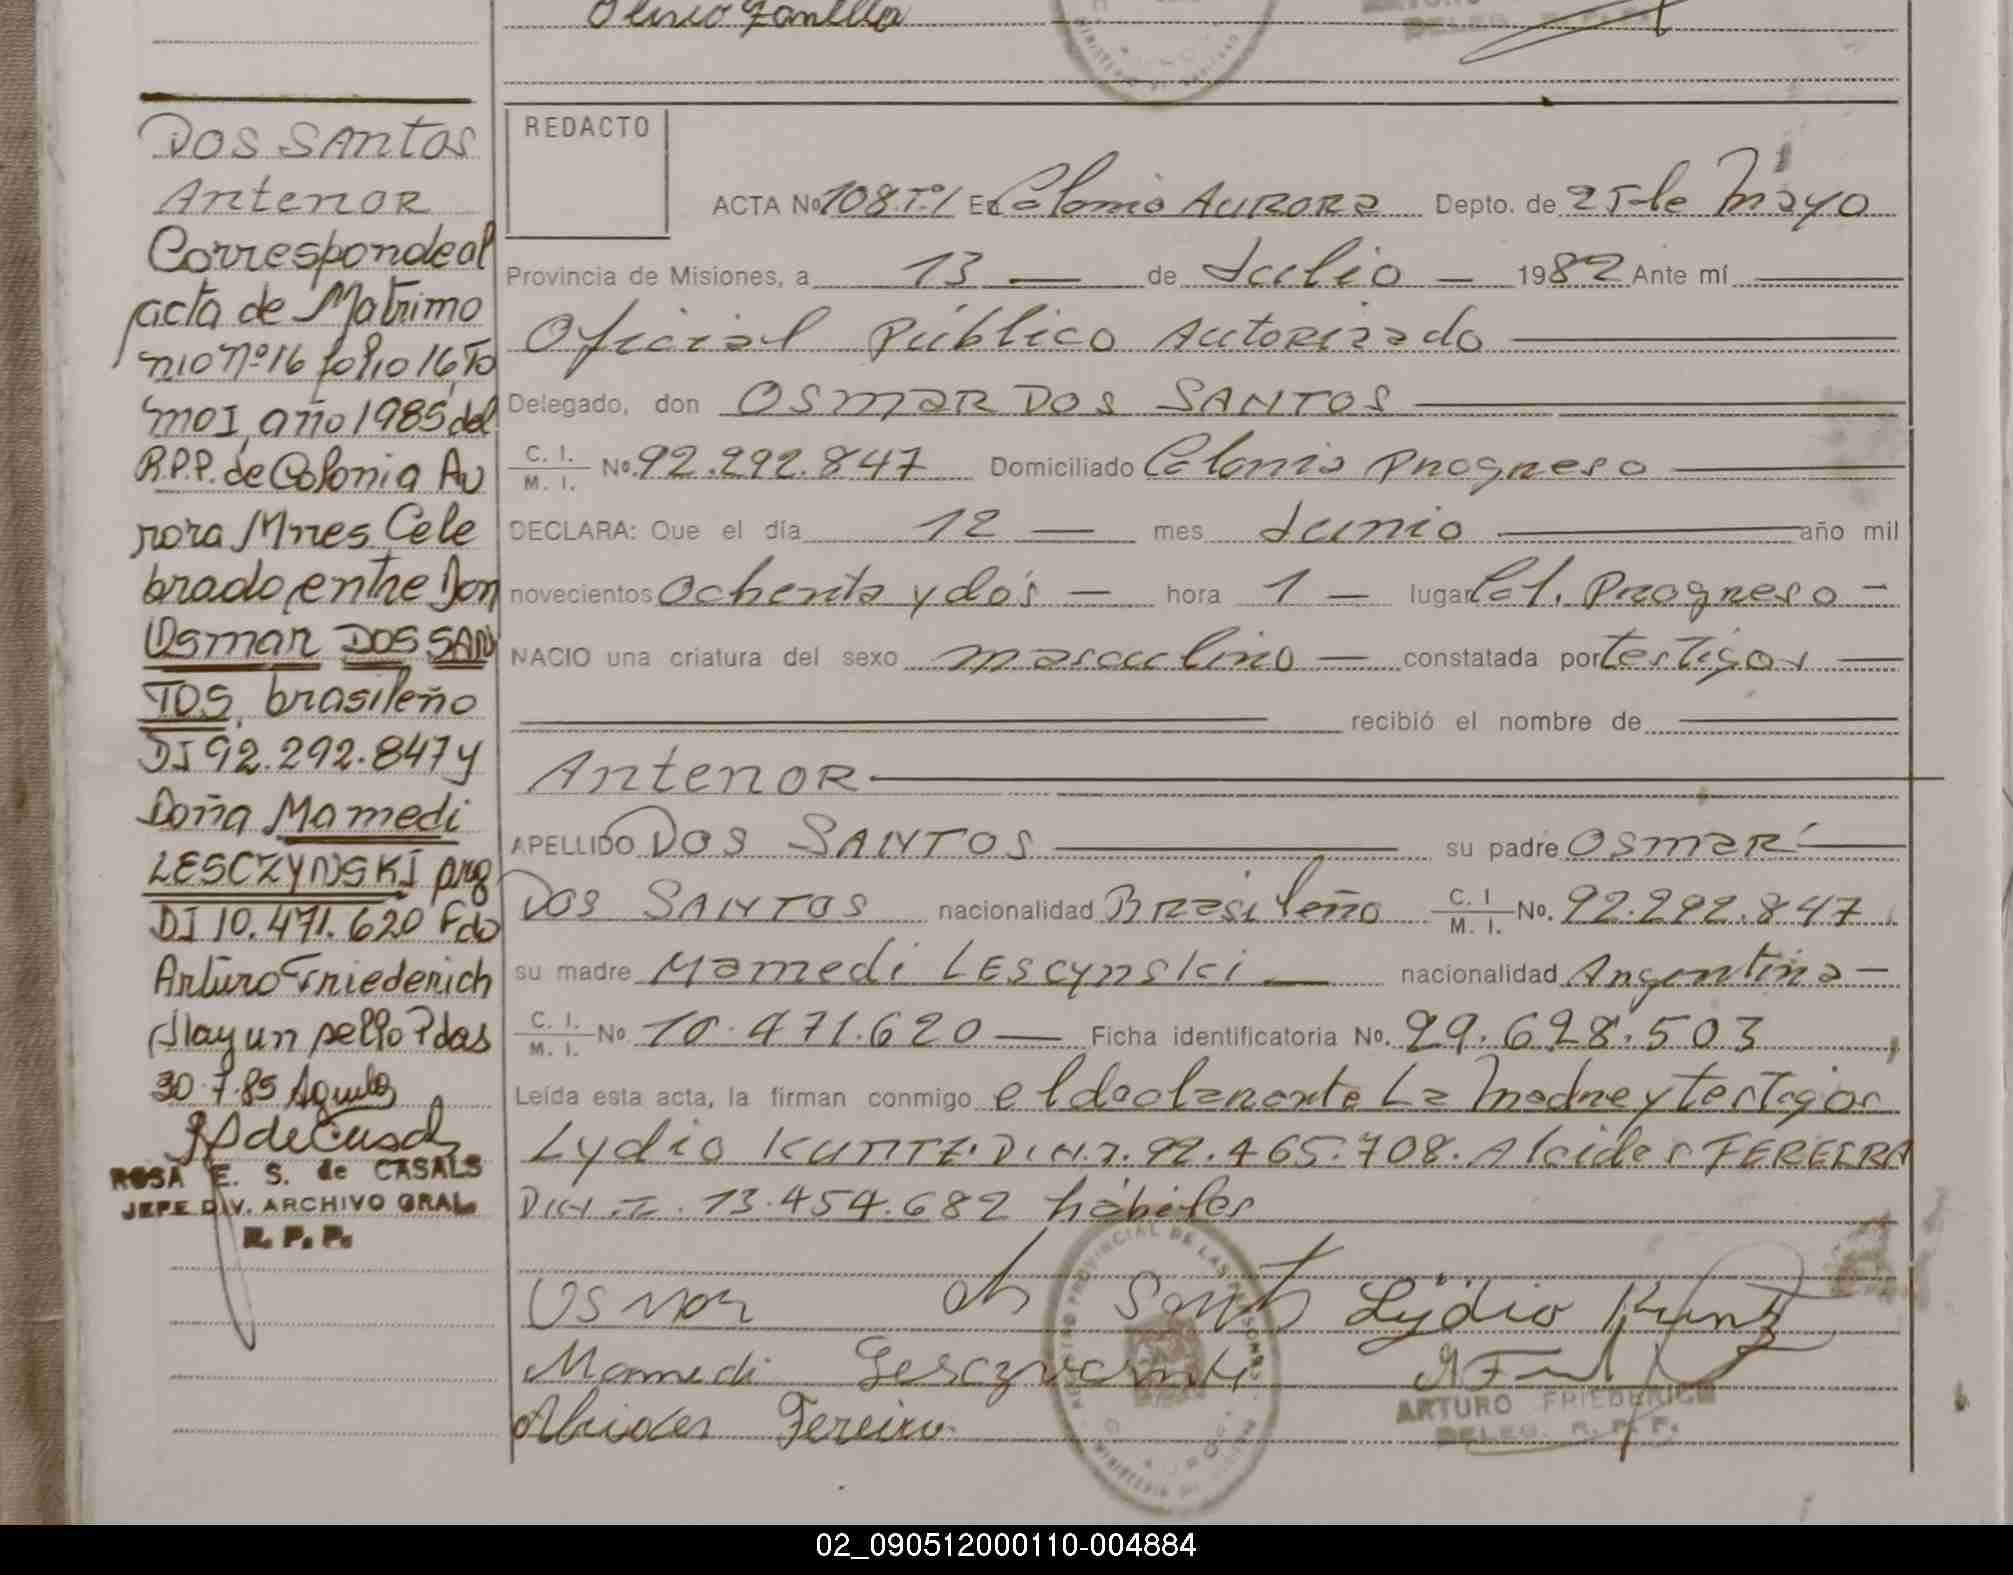 DOS SANTOS
Antenor
Corresponde al
acta de Matrimo
nio Nº 16 folio 16, To
mo I, año 1985 del
R.P.P. de Colonia Au
rora Mnes Cele
brado, entre Don
Osmar DOS SAN
TOS, brasileño
DI 92.292.847 y
Doña Mamedi
LESCZYNSKI arg
DI 10.471.620 Fdo
Arturo Friederich
Hay un sello Pdas
30.7.85
ROSA E. S. de CASALS
JEFE DIV. ARCHIVO GRAL.
R. P. P.
REDACTO
ACTA No 108 Tº I En Colonia AURORA Depto. de 25 de Mayo
Provincia de Misiones, a 13 — de Julio — 1982 Ante mí
Oficial Público Autorizado
Delegado, don OSMAR DOS SANTOS
C. I. M. I. No. 92.292.847 Domiciliado Colonia Progreso
DECLARA: Que el día 12 — mes Junio año mil
novecientos ochenta y dos — hora 1 — lugar Col. Progreso —
NACIO una criatura del sexo masculino — constatada por testigos
recibió el nombre de
Antenor
APELLIDO DOS SANTOS su padre OSMAR
DOS SANTOS nacionalidad Brasileño C. I. M. I. No. 92.292.847
su madre Mamedi LESCYNSKI nacionalidad Argentina —
C. I. M. I. No. 10.471.620 — Ficha identificatoria No. 29.628.503
Leída esta acta, la firman conmigo el declarante La Madre y testigos
Lydio KUNTZ. D.N.I. 92.465.708. Alcides FEREIRA
D.N.I. 13.454.682 hábiles
Osmar dos Santos Lydio Kuntz
Mamedi Lesczynski
Alcides Fereira
ARTURO FRIEDERICH
DELEG. R. P. P.
REGISTRO PROVINCIAL DE LAS PERSONAS
02_090512000110-004884